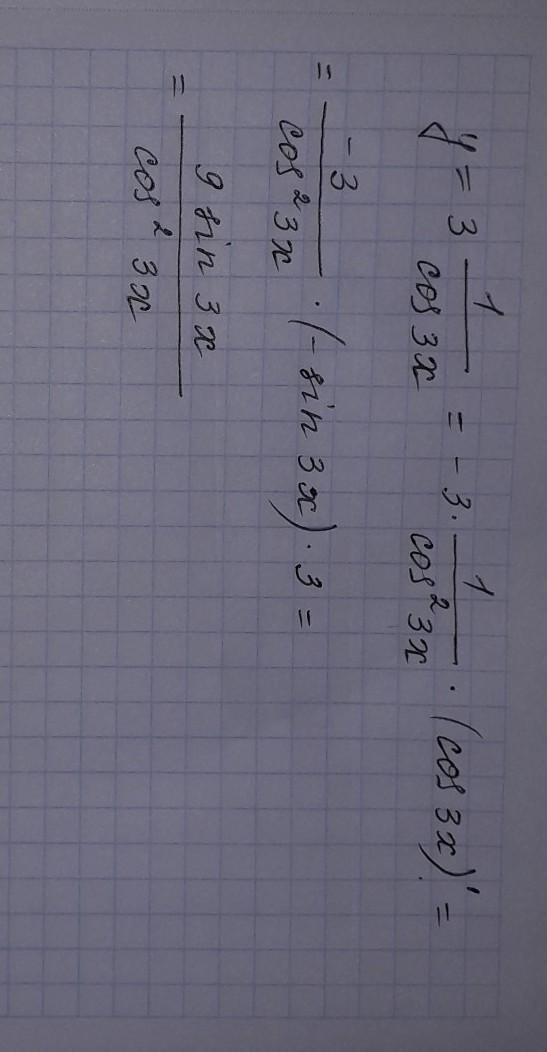 y = 3 1/cos 3x = - 3 · 1/cos² 3x · (cos 3x)' =
= -3/cos² 3x · (- sin 3x) · 3 =
= 9 sin 3x/cos² 3x